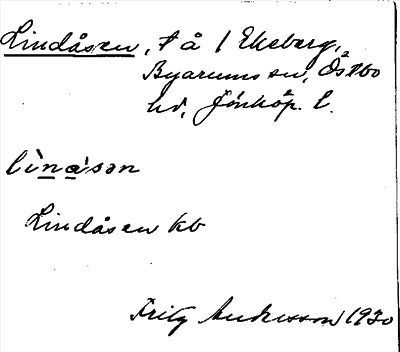 Lindåsen, t å / Ekeberg,
Byarums sn, Östbo
hd, Jönköp. l.
lìnaˋsən
Lindåsen kb
Fritz Andersson 1930